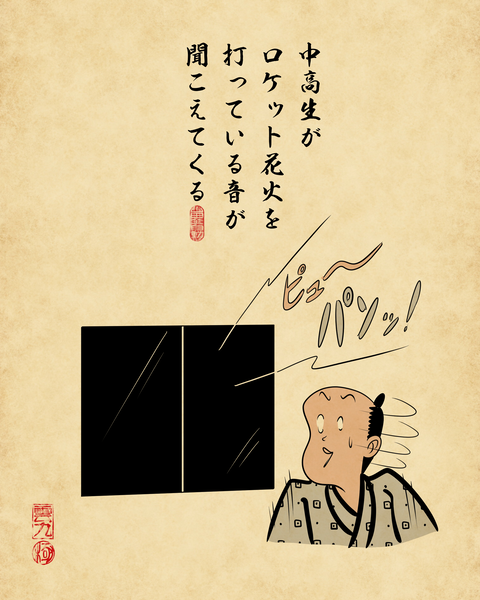 中高生が
ロケット花火を
打っている音が
聞こえてくる
ピュ〜
パンッ!